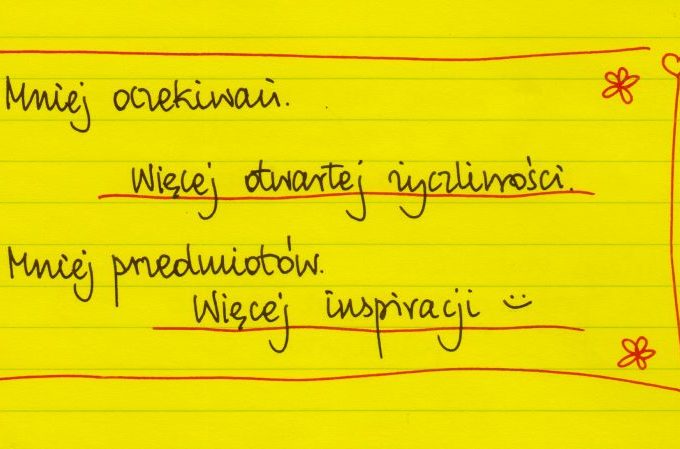 Mniej oczekiwań.
Więcej otwartej życzliwości.
Mniej przedmiotów.
Więcej inspiracji :)